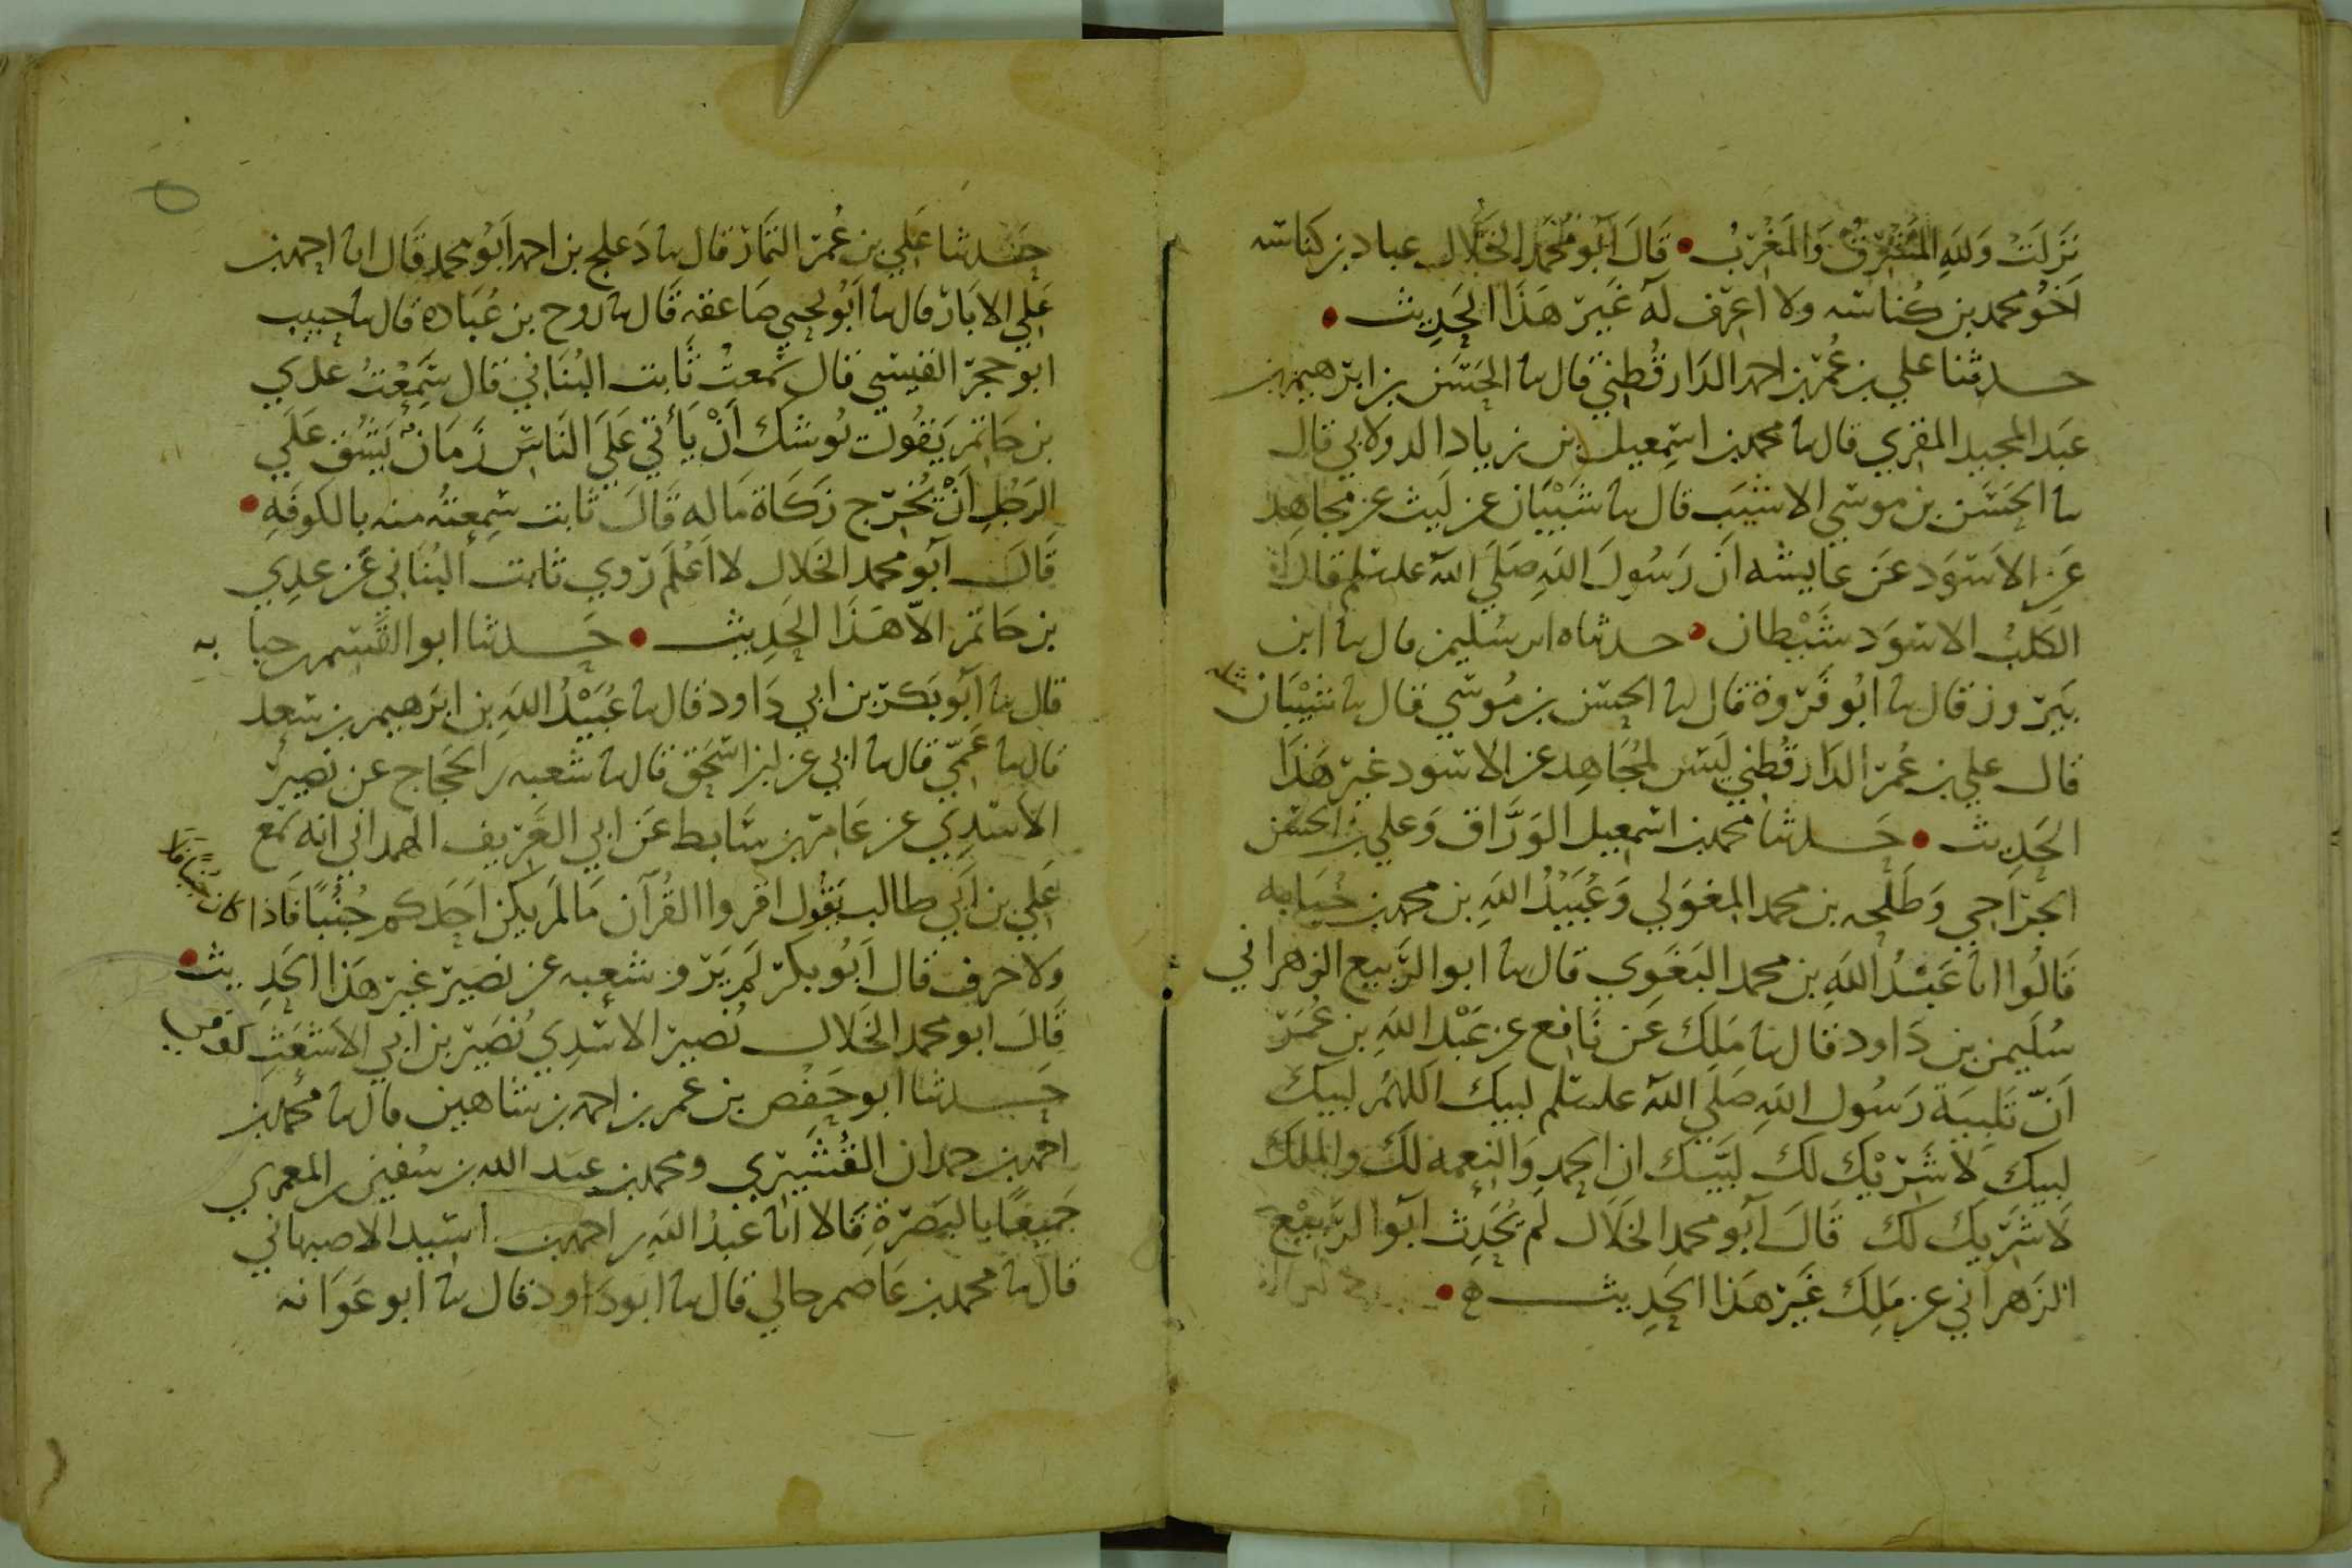 نَزَلَتْ وَلِلَّهِ المَشْرِقُ وَالمَغْرِبُ • قَالَ أَبُو مُحَمَّد الخَلَّال عباد بن كناسه
أَخُو محمد بن كُناسه ولا اعرف لَهُ غَيرَ هَذَا الحَدِيث •
حدثنا علي بن عُمَر بن احمد الدَارقُطِني قال نا الحَسَن بن ابرهيم بن
عَبد المجيد المقري قال نا محمد بن اسمعيل بن زياد الدولابي قال
نا الحَسَن بن موسي الاشيَب قال نا شَيْبَان عن لَيث عن مجاهد
عَن الاَسوَد عَن عايشه أن رَسُولَ اللَّهِ صَلَى اللَّه عليه سلم قال
الكَلبُ الاسوَد شَيْطان • حدثناه ابن سُليمن قال نا ابن
بَيرَوز قال نا أبُو فَروة قال نا الحسَن بن مُوسي قال نا شَيْبَان
قال علي بن عُمَر الدَارقُطني لَيس لمُجَاهِد عن الاسود غير هَذَا
الحَدِيث • حَدثنا محمد بن اسمعيل الوَرَّاق وَعلي بن الحسَن
الجرّاحي وَطَلحه بن محمد المغوَلي وَعُبَيْدُ اللَّهِ بن محمد بن حُبَابه
قَالُوا انا عَبْدُ اللَّهِ بن محمد البَغَوِي قال نا ابو الرَّبيع الزهراني
سُلَيمن بن دَاود قال نا مَلِك عَن نَافع عن عَبْد اللَّهِ بن عُمَرَ
أَنّ تَلبيَة رَسُول اللَّهِ صَلَى اللَّه عليه سلم لبيك اللهُمَّ لبيك
لبيك لاَ شَرِيْك لك لبَّيك ان الحمد وَالنِعمه لَكَ والملك
لَا شرَيك لك قَالَ أبو محمد الخَلَال لَم يُحَدِث أبو الرَّبيْع
الزَهراني عن مَلِك غَيرَ هَذا الحَدِيث ه •
حَدثنا عَلي بن عُمَر التمَّار قال نا دَعلج بن احمد أبُو محمد قَال انا احمد بن
عَلي الابَار قال نا أَبُو يحيي صَاعقه قَال نا روح بن عُبَاده قال نا حبيب
ابو حجر القيسي قال سَمعتُ ثَابت البُنَاني قال سَمِعْتُ عدي
بن حَاتم يَقُول يُوشك أَنْ يَأتي عَلَى النَاس زَمَانٌ يَشُق عَلَي
الرَجُلِ أَنْ يُخرِج زَكَاة مَاله قَالَ ثَابت سَمِعتُه منه بالكوفَه •
قَالَ أبو محمد الخَلال لا أَعْلَم رَوي ثابت البُنَاني عَن عدِي
بن حَاتم الاّ هَذَا الحَدِيث • حَدثنا ابو القسم بن حبابه
قال نا أبو بَكر بن ابي دَاود قال نا عُبَيْدُ اللَّهِ بن ابرَهيم بن سَعد
قال نا عَمِّي قال نا ابي عن ابن اسحَق قال نا شعبه بن الحَجاج عن نُصَير
الاَسَدِي عن عَامر بن سَابط عَن ابي الغَريف الهمداني انه سَمع
عَلي بن أَبي طالب يَقُول اقروا القُرآن مَا لم يكن احَدكم جُنُبًا فَاذا كان جُنُبًا فلا
وَلا حَرف قال أَبُو بكر لَم يَرو شعبه عن نصَير غير هَذَا الحَدِيث •
قَالَ ابو محمد الخَلال نُصير الاسَدِي نُصَير بن ابي الاشعَث كوفي
حَدثنا أبو حَفص بن عمر بن احمد بن شاهين قال نا محمد بن
احمد بن حمدان القُشَيري ومحمد بن عبد الله بن سُفين المعمري
جَميعًا بالبَصرَةِ قَالا انا عَبدُ اللَّهِ بن احمد بن اسَيد الاصبهاني
قال نا محمد بن عَاصم خالي قال نا ابو دَاود قال نا ابو عَوَانه